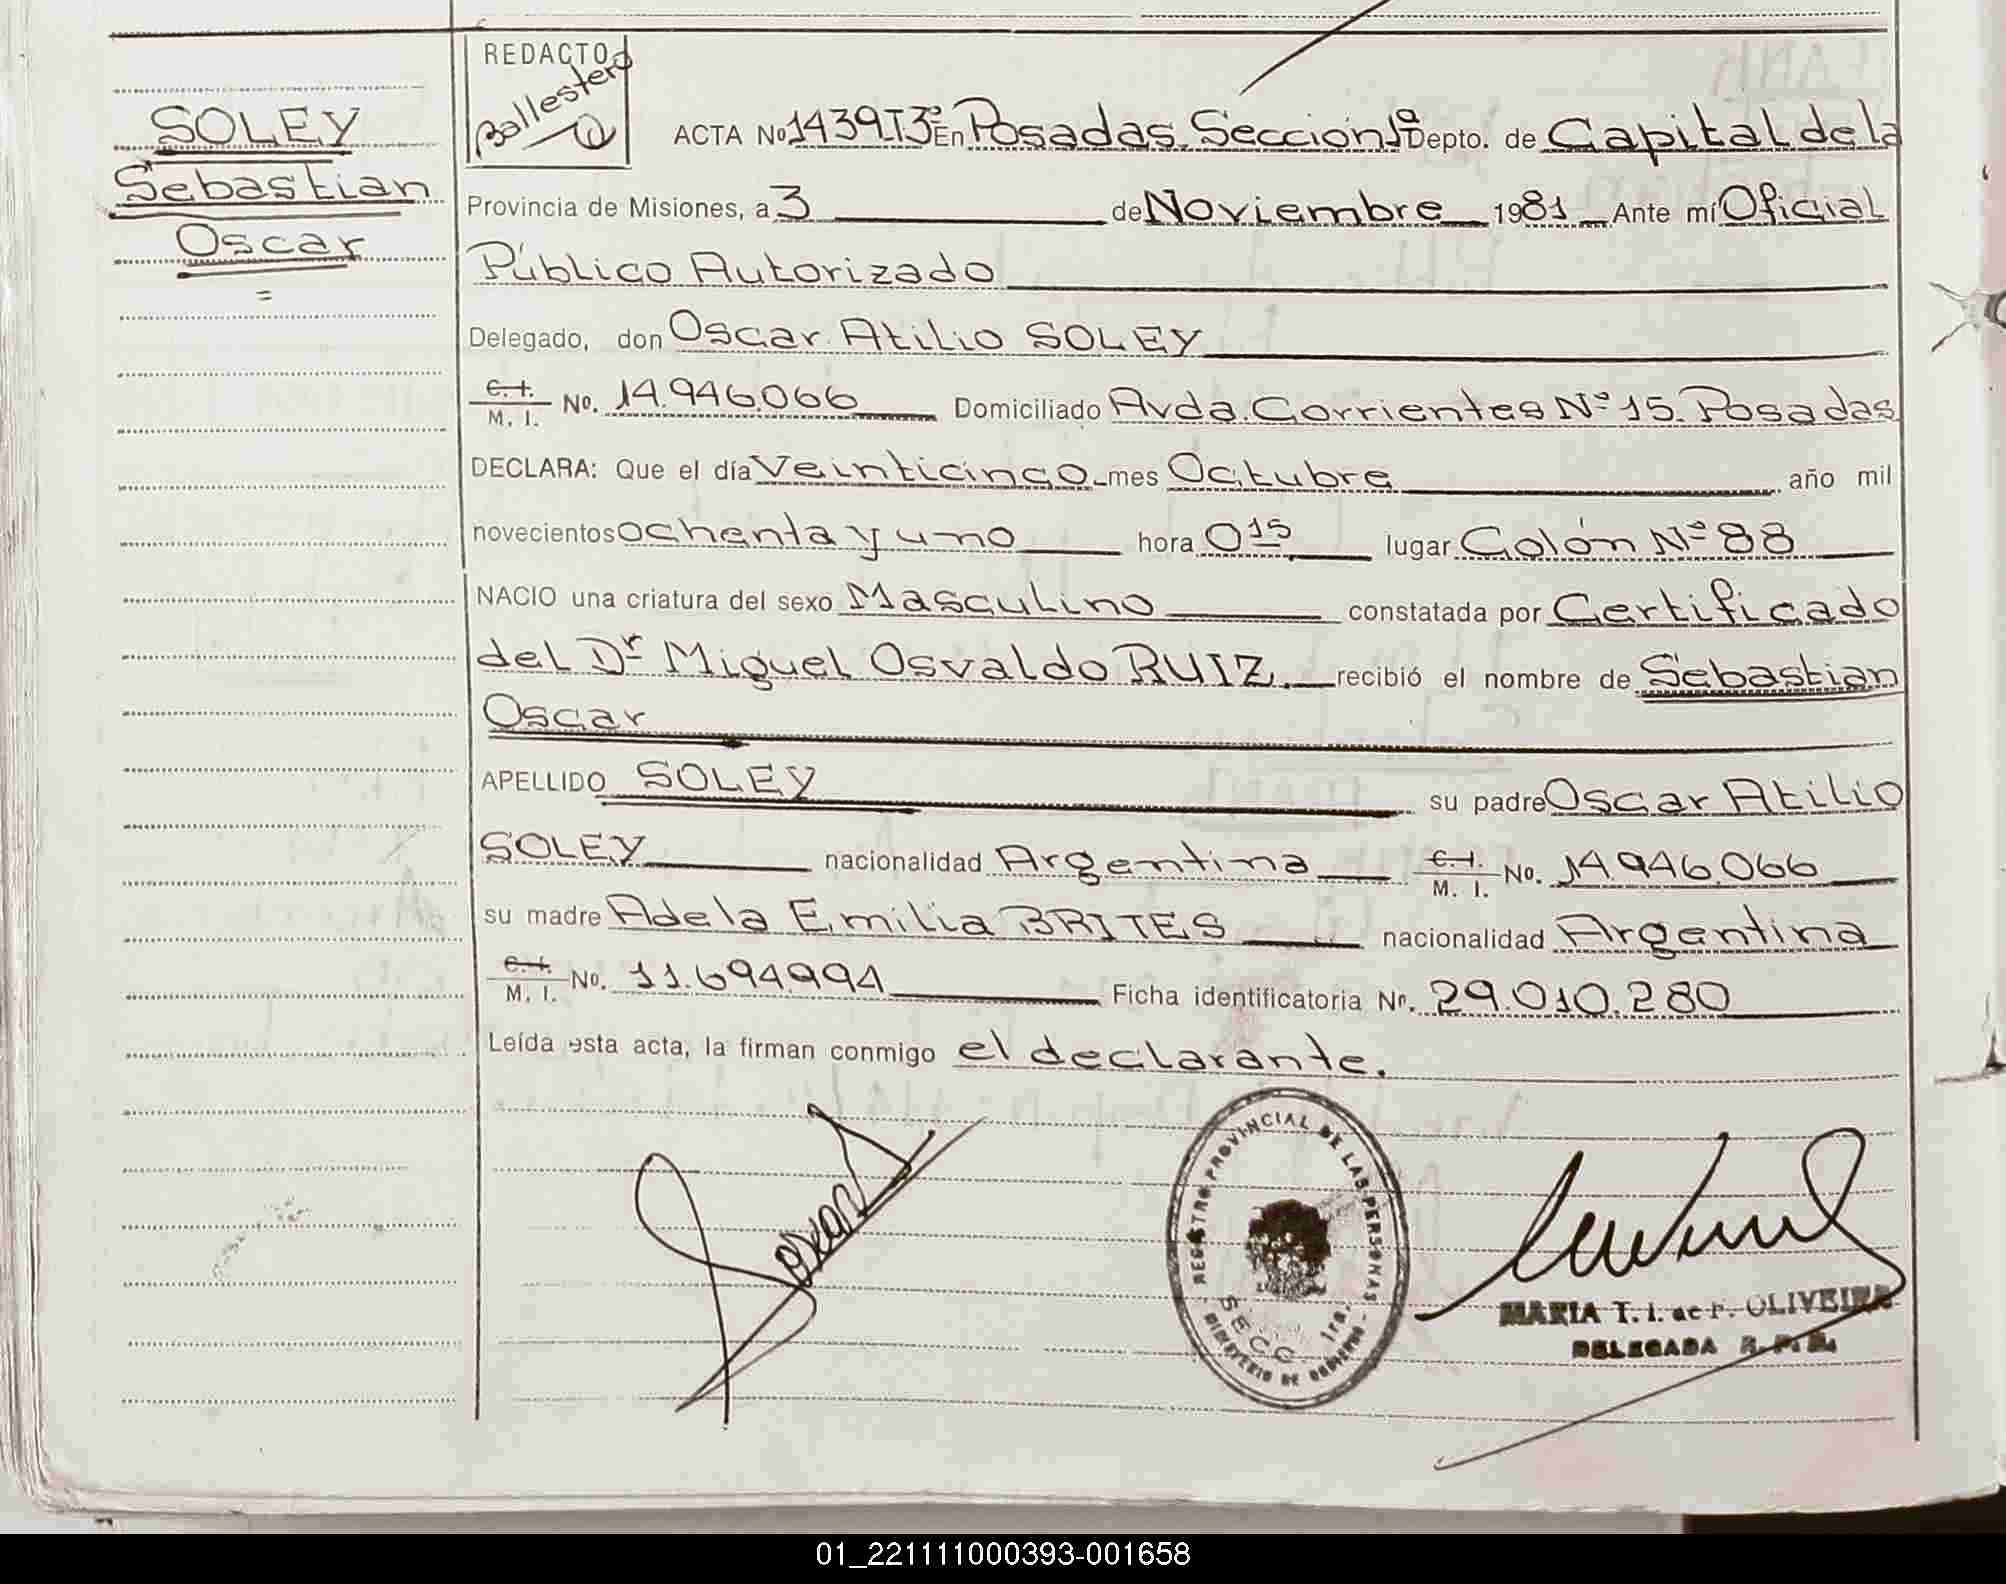 SOLEY
Sebastian
Oscar
=
REDACTO
Ballestero
ACTA No 1439 T3º En Posadas. Sección 1º Depto. de Capital de la
Provincia de Misiones, a 3 de Noviembre 1981 Ante mí Oficial
Público Autorizado
Delegado, don Oscar Atilio SOLEY
C. I. M. I. No. 14.946.066 Domiciliado Avda. Corrientes Nº 15. Posadas
DECLARA: Que el día Veinticinco mes Octubre año mil
novecientos ochenta y uno hora 0 15 lugar Colón Nº 88
NACIO una criatura del sexo Masculino constatada por Certificado
del Dr Miguel Osvaldo RUIZ. recibió el nombre de Sebastian
Oscar
APELLIDO SOLEY su padre Oscar Atilio
SOLEY nacionalidad Argentina C. I. M. I. No. 14.946.066
su madre Adela Emilia BRITES nacionalidad Argentina
C. I. M. I. No. 11.694.994 Ficha identificatoria No. 29.010.280
Leída esta acta, la firman conmigo el declarante.
REGISTRO PROVINCIAL DE LAS PERSONAS
SECC. 1ra.
MINISTERIO DE GOBIERNO
MARIA T. I. de F. OLIVEIRA
DELEGADA R. P. P.
01_221111000393-001658